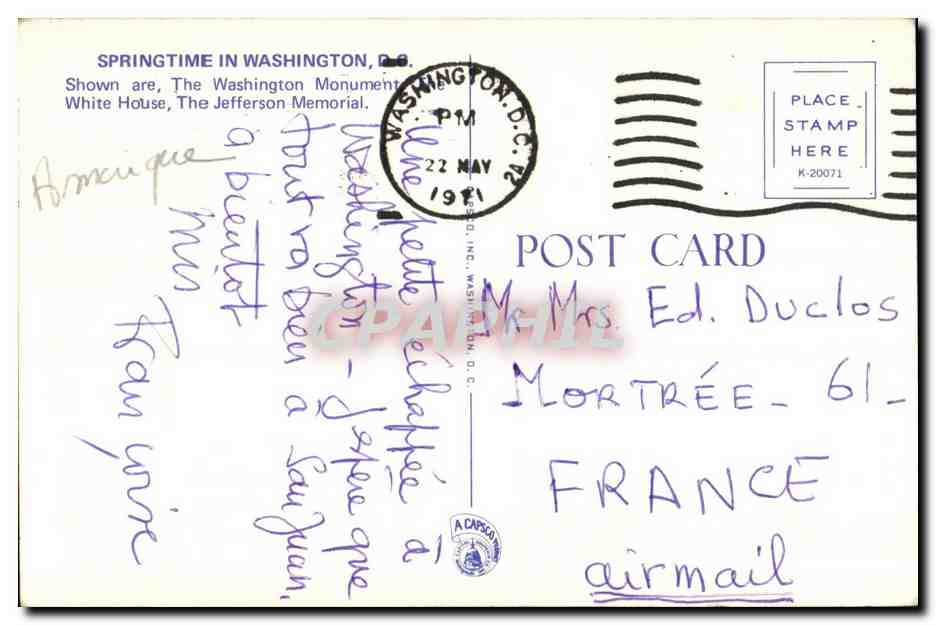 SPRINGTIME IN WASHINGTON, D.C.
Shown are, The Washington Monument, The
White House, The Jefferson Memorial.
Amerique
Une petite échappée à
Washington - J'espere que
tout va bien a San Juan.
a bientot
Françoise
WASHINGTON, D.C.
PM
22 MAY
1971
PLACE
STAMP
HERE
K-20071
POST CARD
Mr Mrs. Ed. Duclos
MORTRÉE - 61 -
FRANCE
airmail
CAPSCO, INC., WASHINGTON, D. C.
A CAPSCO
CPAPHIL